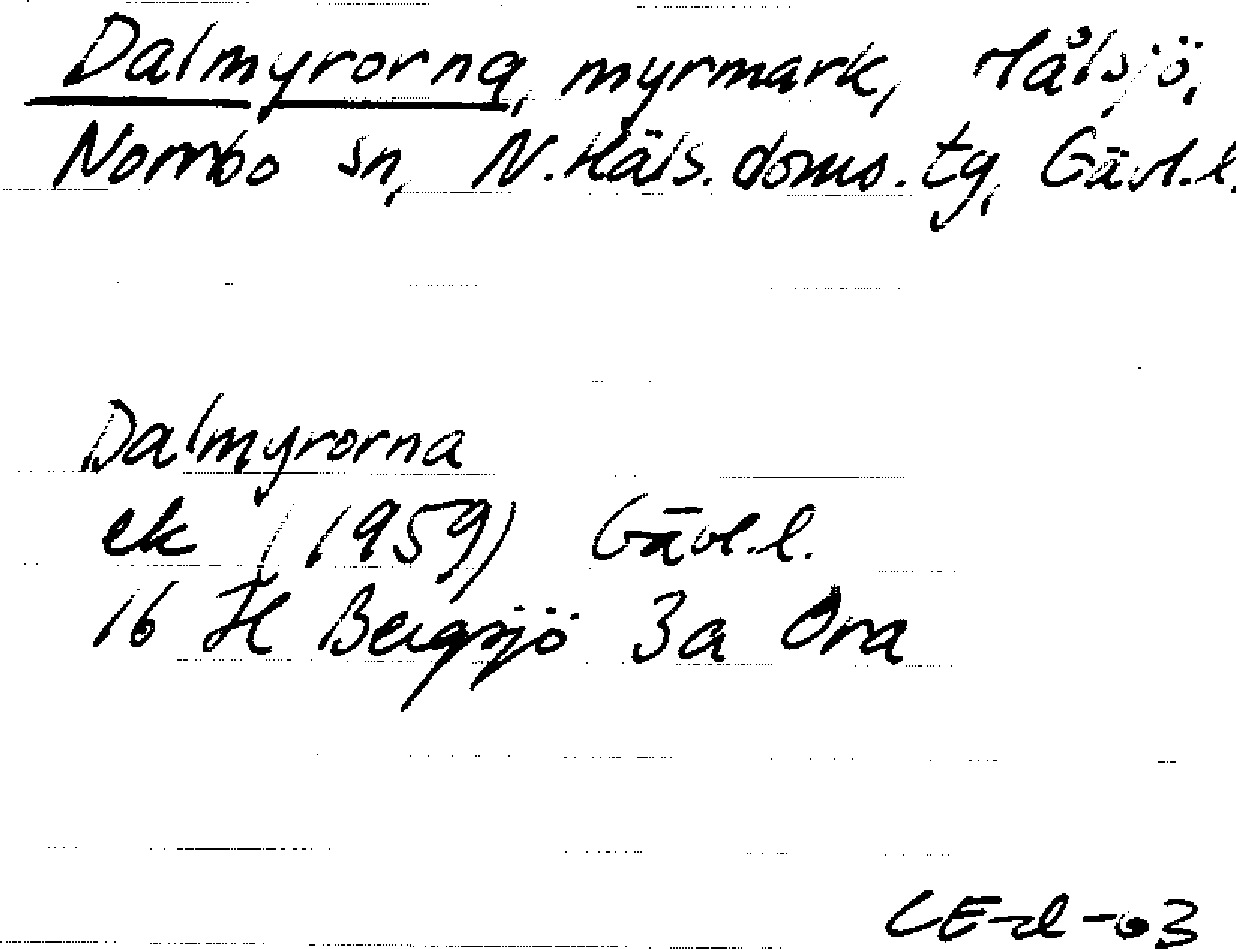 Dalmyrorna, myrmark, Hålsjö,
Norrbo sn, N. Häls. doms. tg, Gävl. l.
Dalmyrorna
ek (1959) Gävl. l.
16 H Bergsjö 3a Ora